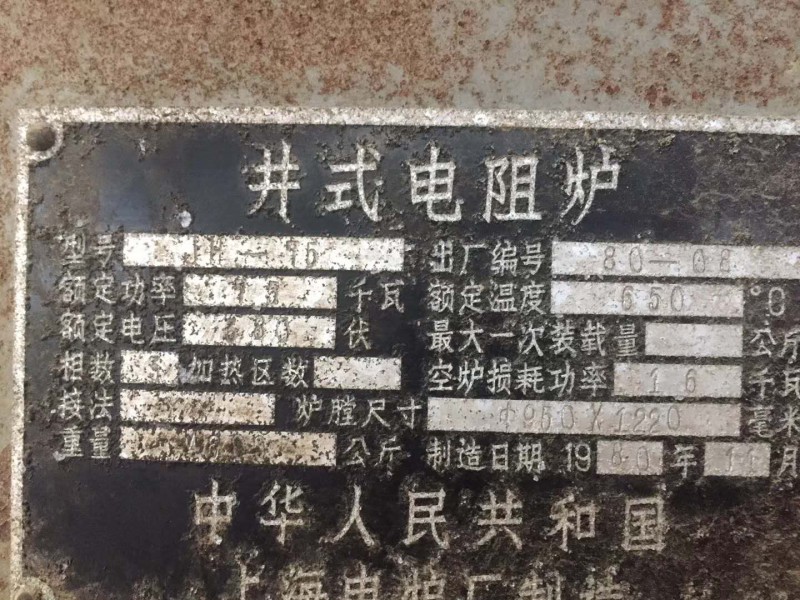 井式电阻炉
型号 出厂编号 80—08
额定功率 千瓦 额定温度 650 °C
额定电压 伏 最大一次装载量 公斤
相数 加热区数 空炉损耗功率 16 千瓦
接法 炉膛尺寸 Φ950X1220 毫米
重量 公斤 制造日期 1980年11月
中华人民共和国
上海电炉厂制造